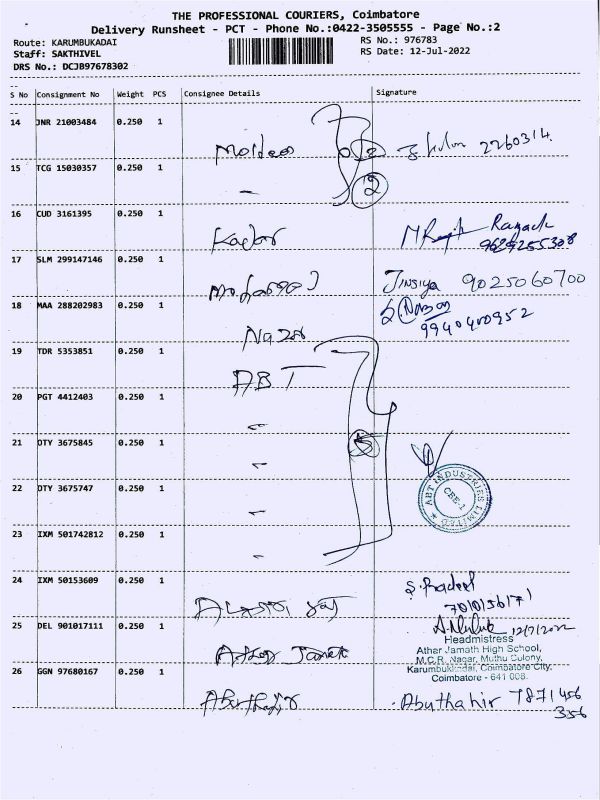 THE PROFESSIONAL COURIERS, Coimbatore
Delivery Runsheet - PCT - Phone No.:0422-3505555 - Page No.:2
Route: KARUMBUKADAI
RS No.: 976783
Staff: SAKTHIVEL
RS Date: 12-Jul-2022
DRS No.: DCJB97678302
S No Consignment No Weight PCS Consignee Details Signature
14 JNR 21003484 0.250 1
2260314
15 TCG 15030357 0.250 1
2
16 CUD 3161395 0.250 1
Kadar
17 SLM 299147146 0.250 1
Jinsiya 9025060700
18 MAA 288202983 0.250 1
9940400952
19 TDR 5353851 0.250 1
ABT
20 PGT 4412403 0.250 1
21 OTY 3675845 0.250 1
5
22 OTY 3675747 0.250 1
ABT INDUSTRIES LIMITED
CBE-1
23 IXM 501742812 0.250 1
24 IXM 50153609 0.250 1
25 DEL 901017111 0.250 1
12/7/2022
Headmistress
Athar Jamath High School,
M.C.R. Nagar, Muthu Colony,
Karumbukkadai, Coimbatore City,
Coimbatore - 641 008.
26 GGN 97680167 0.250 1
Abuthahir Abuthahir 7871456
356